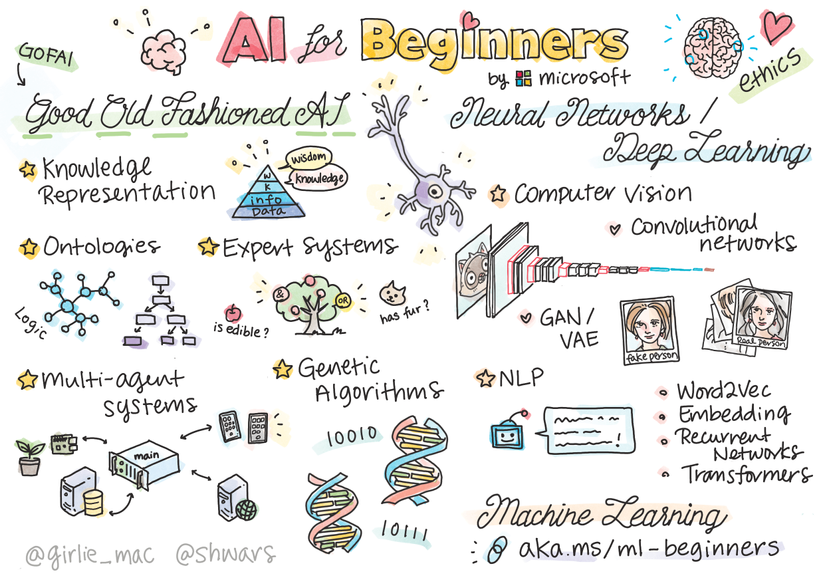 AI for Beginners
by microsoft
GOFAI
ethics
Good Old Fashioned AI
Knowledge
Representation
wisdom
knowledge
W
K
info
Data
Ontologies
Logic
Expert Systems
&
OR
is edible?
has fur?
Multi-agent
systems
main
Genetic
Algorithms
10010
10111
Neural Networks /
Deep Learning
Computer Vision
Convolutional
networks
GAN/
VAE
fake person
Real person
NLP
!
Word2Vec
Embedding
Recurrent
Networks
Transformers
Machine Learning
aka.ms/ml-beginners
@girlie_mac @shwars